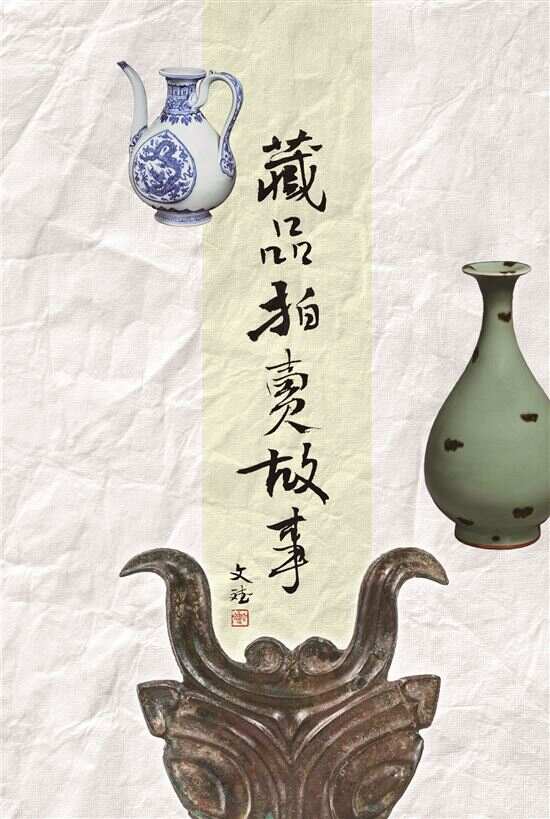 藏品拍賣故事
文斌